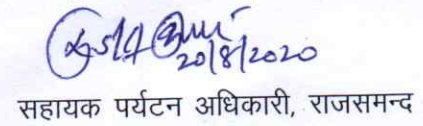 20/8/2020
सहायक पर्यटन अधिकारी, राजसमन्द